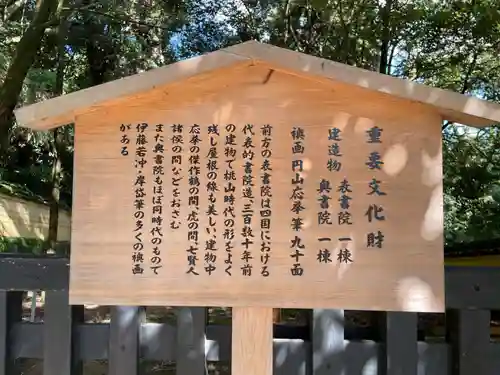 重要文化財
建造物 表書院 一棟
奥書院 一棟
襖画 円山応挙 九十面
前方の表書院は四国における
代表的書院造、三百数十年前
の建物で桃山時代の形をよく
残し屋根の線も美しい、建物中
応挙の傑作鶴の間、虎の間、七賢人
諸侯の間などをおさむ
また奥書院もほぼ同時代のもので
伊藤若冲・岸岱筆の多くの襖画
がある